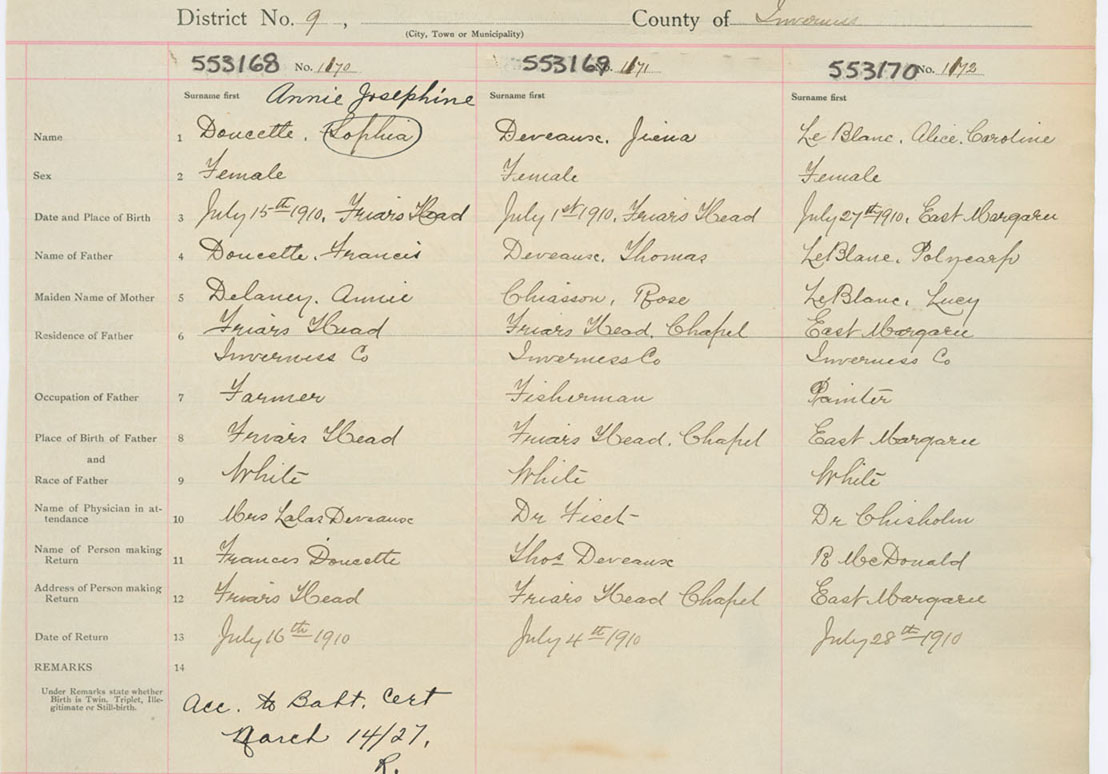 District No. 9, County of Inverness
(City, Town or Municipality)
553168 No. 1170 553169 No. 1171 553170 No. 1172
Surname first Annie Josephine Surname first Surname first
Name 1 Doucette, Sophia Deveaux, Le Blanc, Alice, Caroline
Sex 2 Female Female Female
Date and Place of Birth 3 July 15th 1910, Friars Head July 1st 1910, Friars Head July 27th 1910, East Margaree
Name of Father 4 Doucette, Francis Deveaux, Thomas LeBlanc, Polycarp
Maiden Name of Mother 5 Delaney, Annie Chiasson, Rose LeBlanc, Lucy
Residence of Father 6 Friars Head Friars Head, Chapel East Margaree
Inverness Co Inverness Co Inverness Co
Occupation of Father 7 Farmer Fisherman Painter
Place of Birth of Father 8 Friars Head Friars Head, Chapel East Margaree
and
Race of Father 9 White White White
Name of Physician in at-
tendance 10 Mrs Lalas Deveaux Dr Fiset Dr Chisholm
Name of Person making
Return 11 Francis Doucette Thos Deveaux R McDonald
Address of Person making
Return 12 Friars Head Friars Head Chapel East Margaree
Date of Return 13 July 16th 1910 July 4th 1910 July 28th 1910
REMARKS 14
Under Remarks state whether
Birth is Twin, Triplet, Ille-
gitimate or Still-birth.
Acc. to Bapt. Cert
March 14/27.
R.